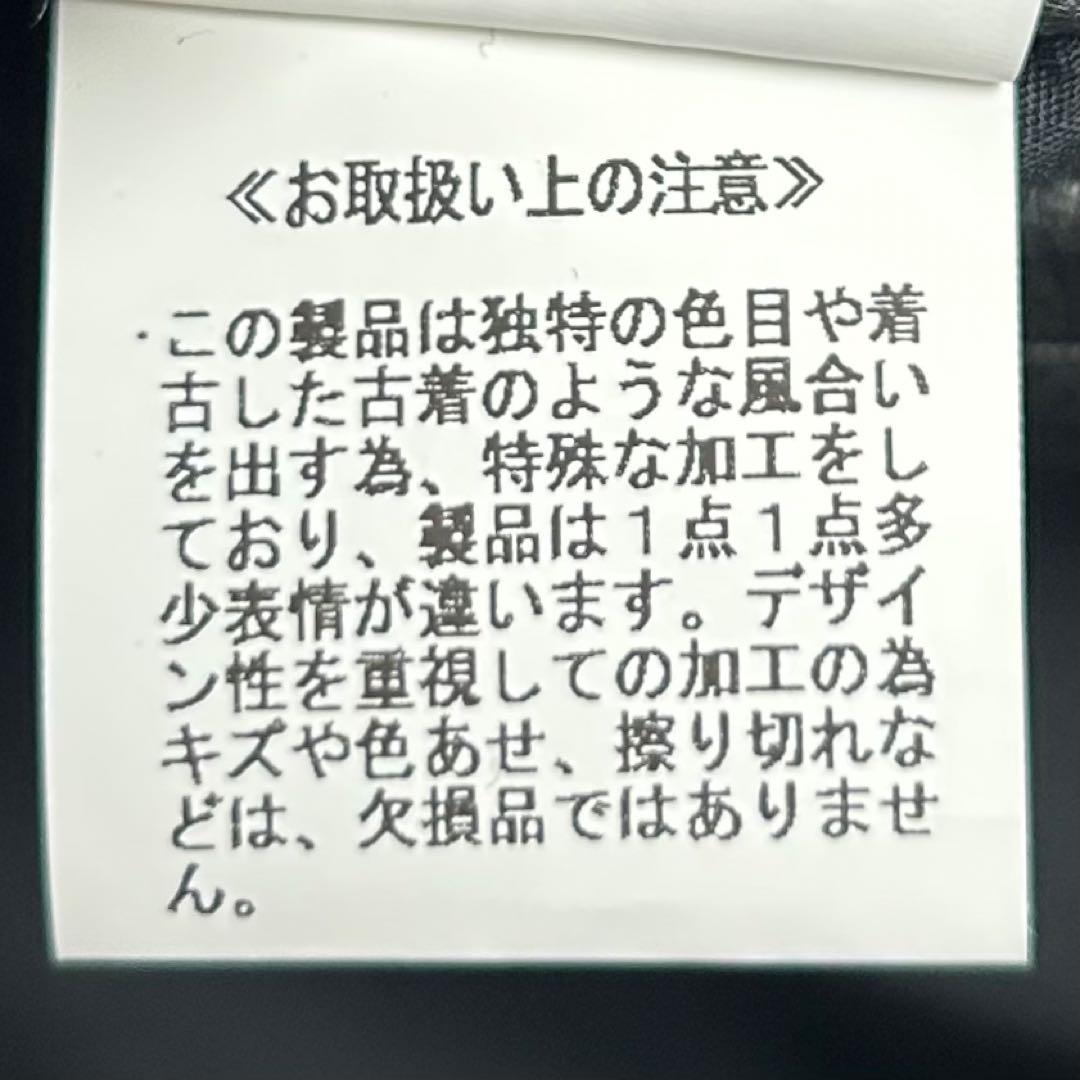 ≪お取扱い上の注意≫
・この製品は独特の色目や着
古した古着のような風合い
を出す為、特殊な加工をし
ており、製品は１点１点多
少表情が違います。デザイ
ン性を重視しての加工の為
キズや色あせ、擦り切れな
どは、欠損品ではありませ
ん。